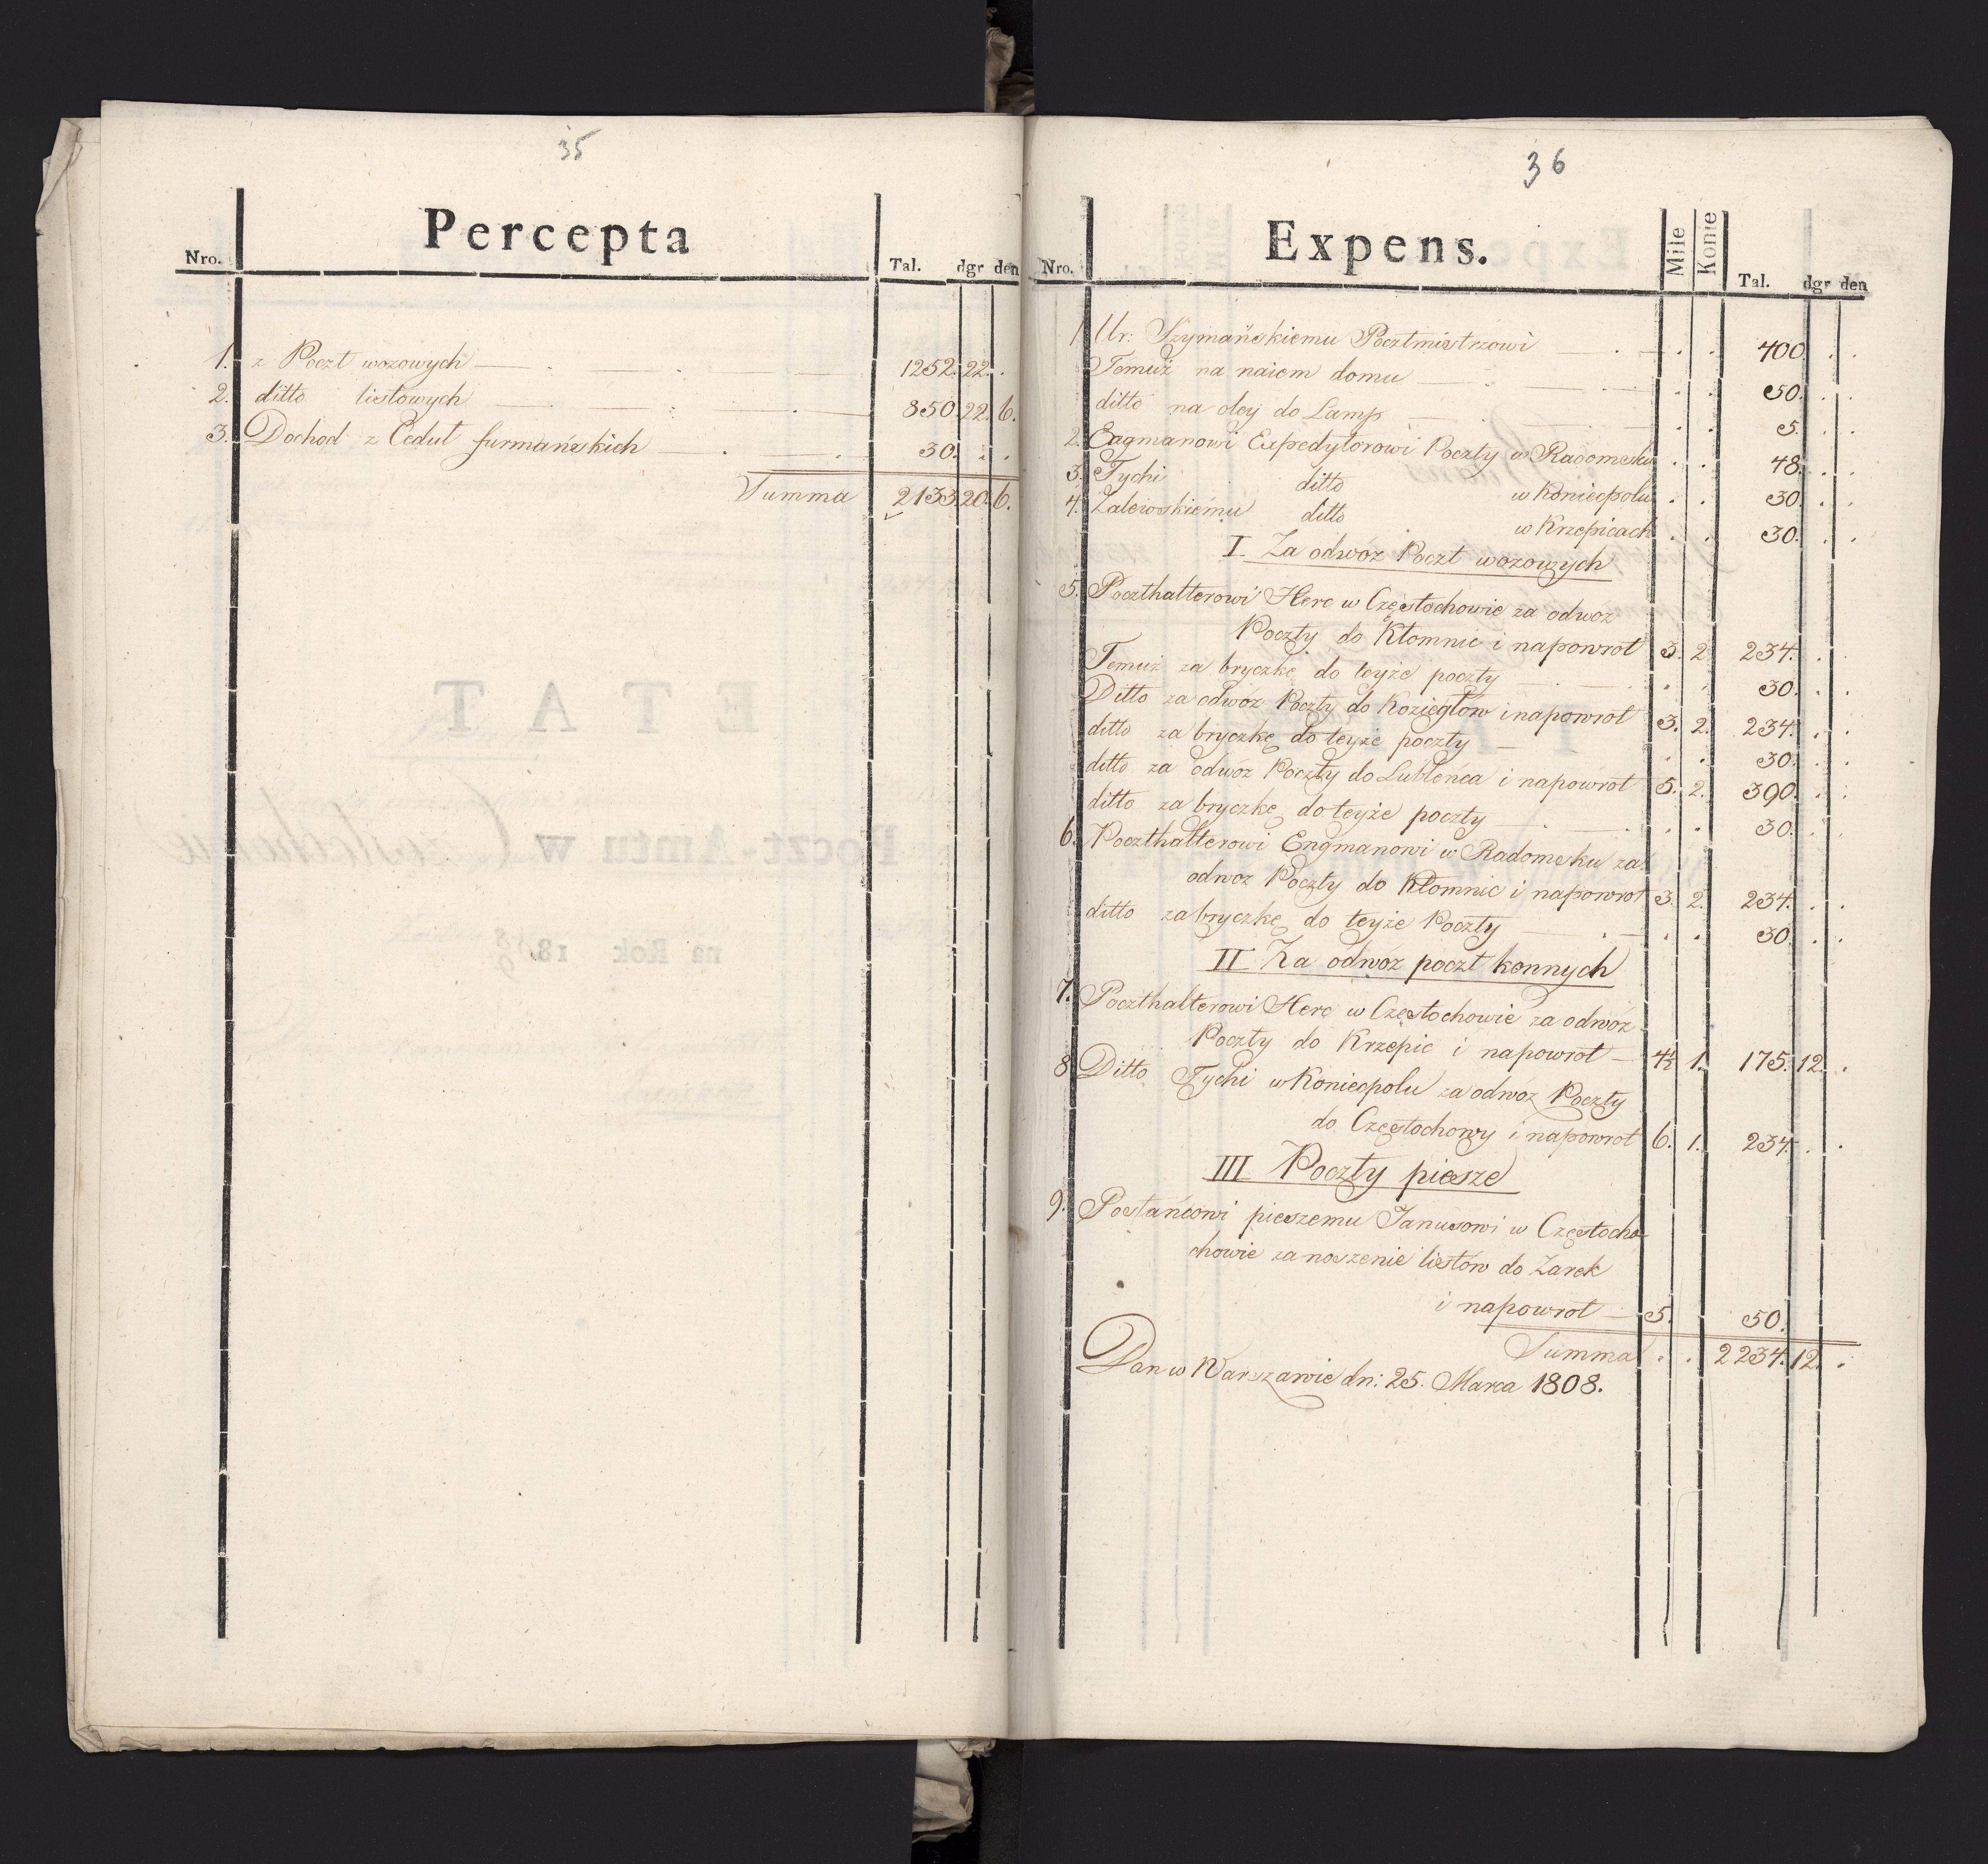 35
Percepta
Nro. Tal. dgr den
1. z Poczt wozowych 1252. 22. .
2. ditto listowych 850. 22. 6.
3. Dochod z Cedul furmańskich 30. . .
Summa 2133. 20. 6.
36
Expens.
Nro. Mile Konie Tal. dgr den
1 Ur: Szymańskiemu Pocztmistrzowi . . 400. . .
Temuż na naiem domu . . 50. . .
ditto na oley do Lamp . . 5. . .
2. Engmanowi Expedytorowi Poczty w Radomsku . . 48. . .
3. Tychi ditto w Koniecpolu . . 30. . .
4. Zalewskiému ditto w Krzepicach . . 30. . .
I Za odwóz Poczt wozowych
5. Poczthalterowi Herc w Częstochowie za odwoz
Poczty do Kłomnic i napowrot 3. 2. 234. . .
Temuż za bryczkę do teyże poczty . . 30. . .
Ditto za odwóz Poczty do Koziegłów i napowrot 3. 2. 234. . .
ditto za bryczkę do teyże poczty . . 30. . .
ditto za odwóz Poczty do Lubleńca i napowrot 5. 2. 390. . .
ditto za bryczkę do teyże poczty . . 30. . .
6. Poczthalterowi Engmanowi w Radomsku za
odwoz Poczty do Kłomnic i napowrot 3. 2. 234. . .
ditto za bryczkę do teyże Poczty . . 30. . .
II Za odwóz poczt konnych
7. Poczthalterowi Herc w Częstochowie za odwóz
Poczty do Krzepic i napowrot 4½ 1. 175. 12. .
8 Ditto Tychi w Koniecpolu za odwoz Poczty
do Częstochowy i napowrot 6. 1. 234. . .
III Poczty piesze
9. Posłańcowi pieszemu Janusowi w Częstocho-
chowie za noszenie listów do Zarek
i napowrot 5. 50.
Summa . . 2234. 12. .
Dan w Warszawie dn: 25. Marca 1808.